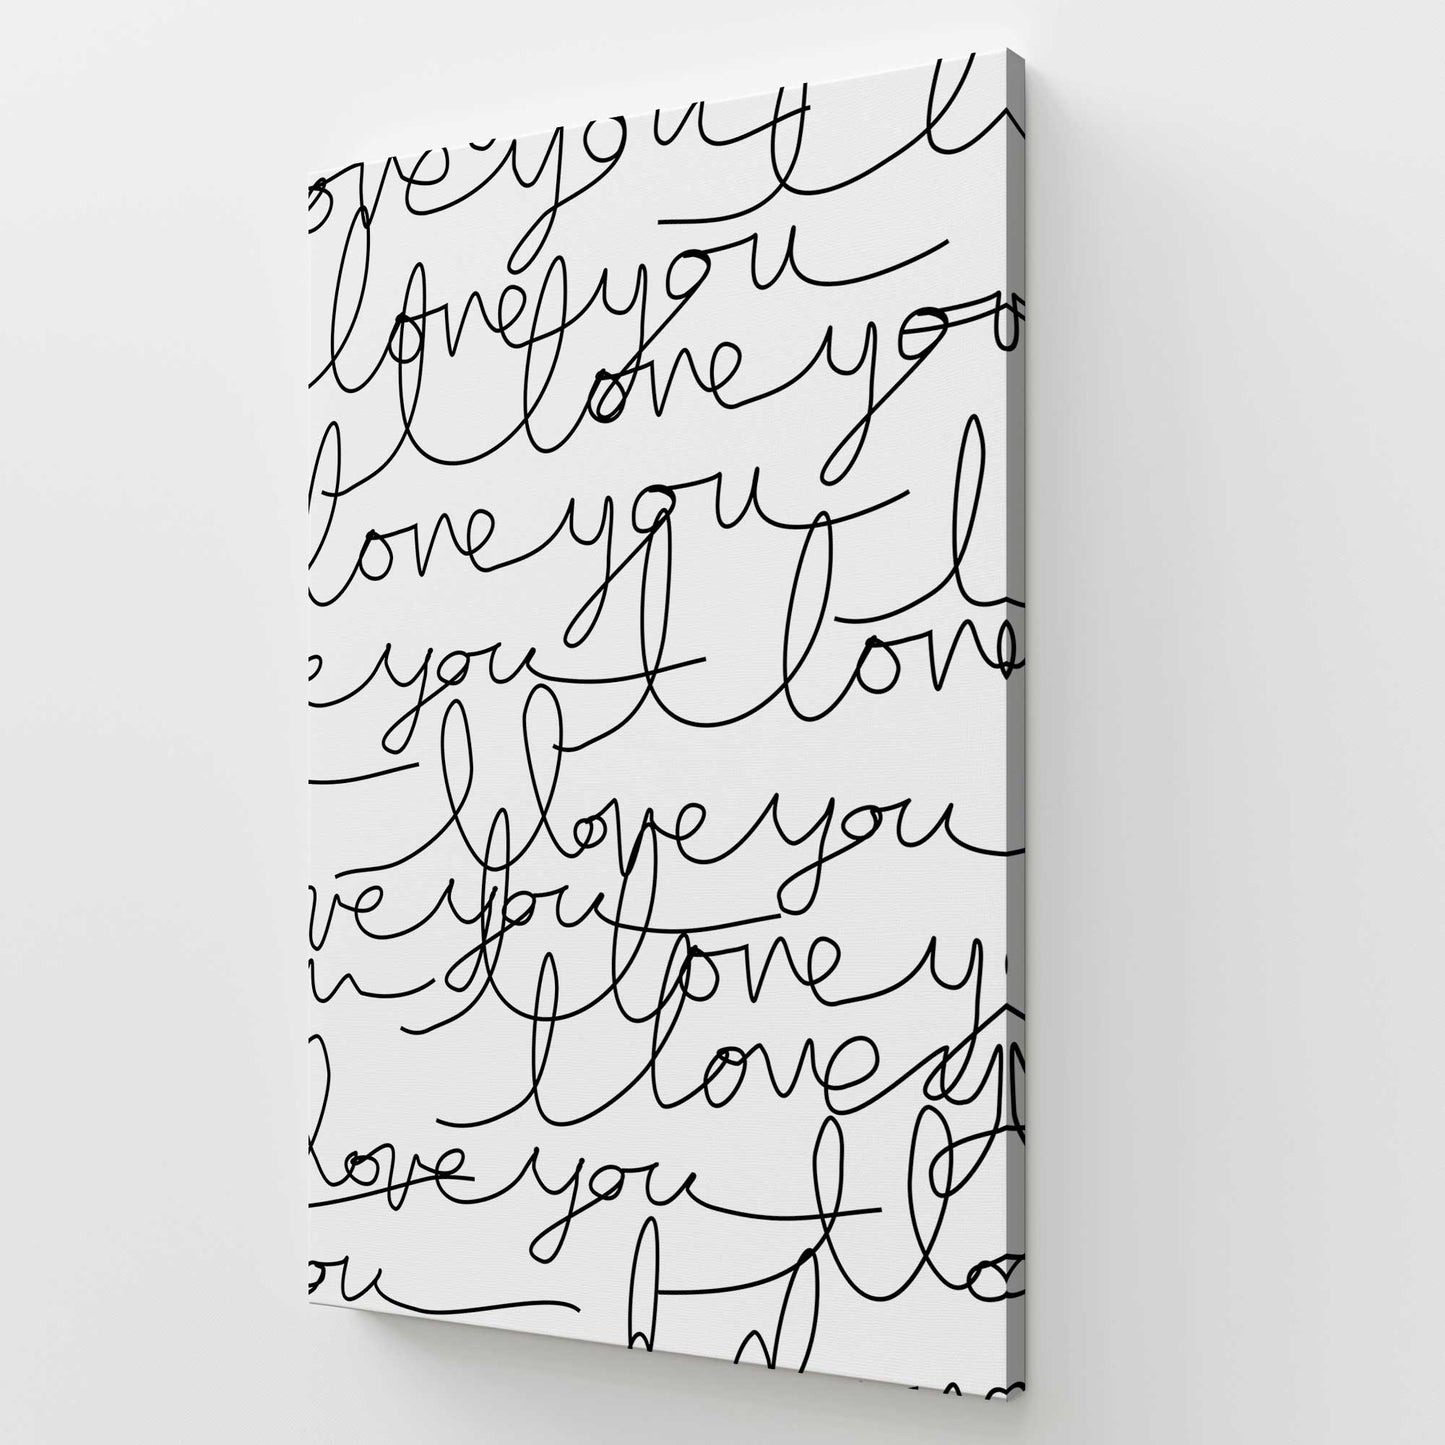 love you I l
I love you
I love you
love you I
e you I love
I love you
ve you I love y
u I love y
love you I lo
ou I l